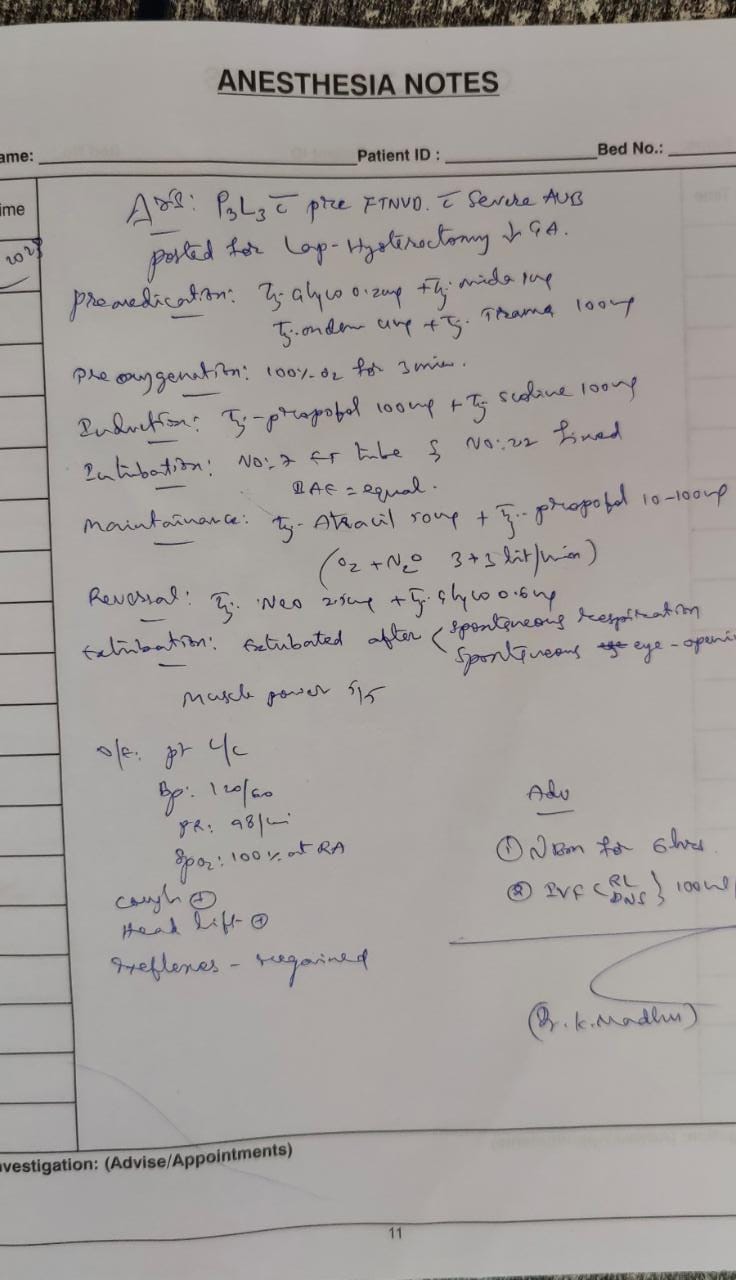 ANESTHESIA NOTES
ame: Patient ID : Bed No.:
ime
P3L3 c̄ pre FTNVD. c̄ Severe AUB
posted for Lap-Hysterectomy ↓ GA.
Premedication: Inj. Glyco 0.2mg + Inj. mida 1mg
Inj. ondem 4mg + Inj. Trama 100mg
Pre oxygenation: 100% O2 for 3 min.
Induction: Inj-propofol 100mg + Inj scoline 100mg
Intubation: No: 7 ET tube & No: 22 fixed
BAE = equal.
Maintainance: Inj- Atracil 50mg + Inj.. propofol 10-100mg
(O2 + N2O 3+3 lit/min)
Reversal: Inj. Neo 2.5mg + Inj. Glyco 0.6mg
Extubation: Extubated after < spontaneous respiration
spontaneous eye-openi
Muscle power 5/5
O/E: pt c/c
Bp: 120/60
PR: 98/mi
Spo2: 100% at RA
Cough ⊕
Head lift ⊕
reflexes - regained
Adv
① NBM for 6 hrs.
② IVF { RL
DNS } 100ml
(Dr. K. Madhu)
nvestigation: (Advise/Appointments)
11